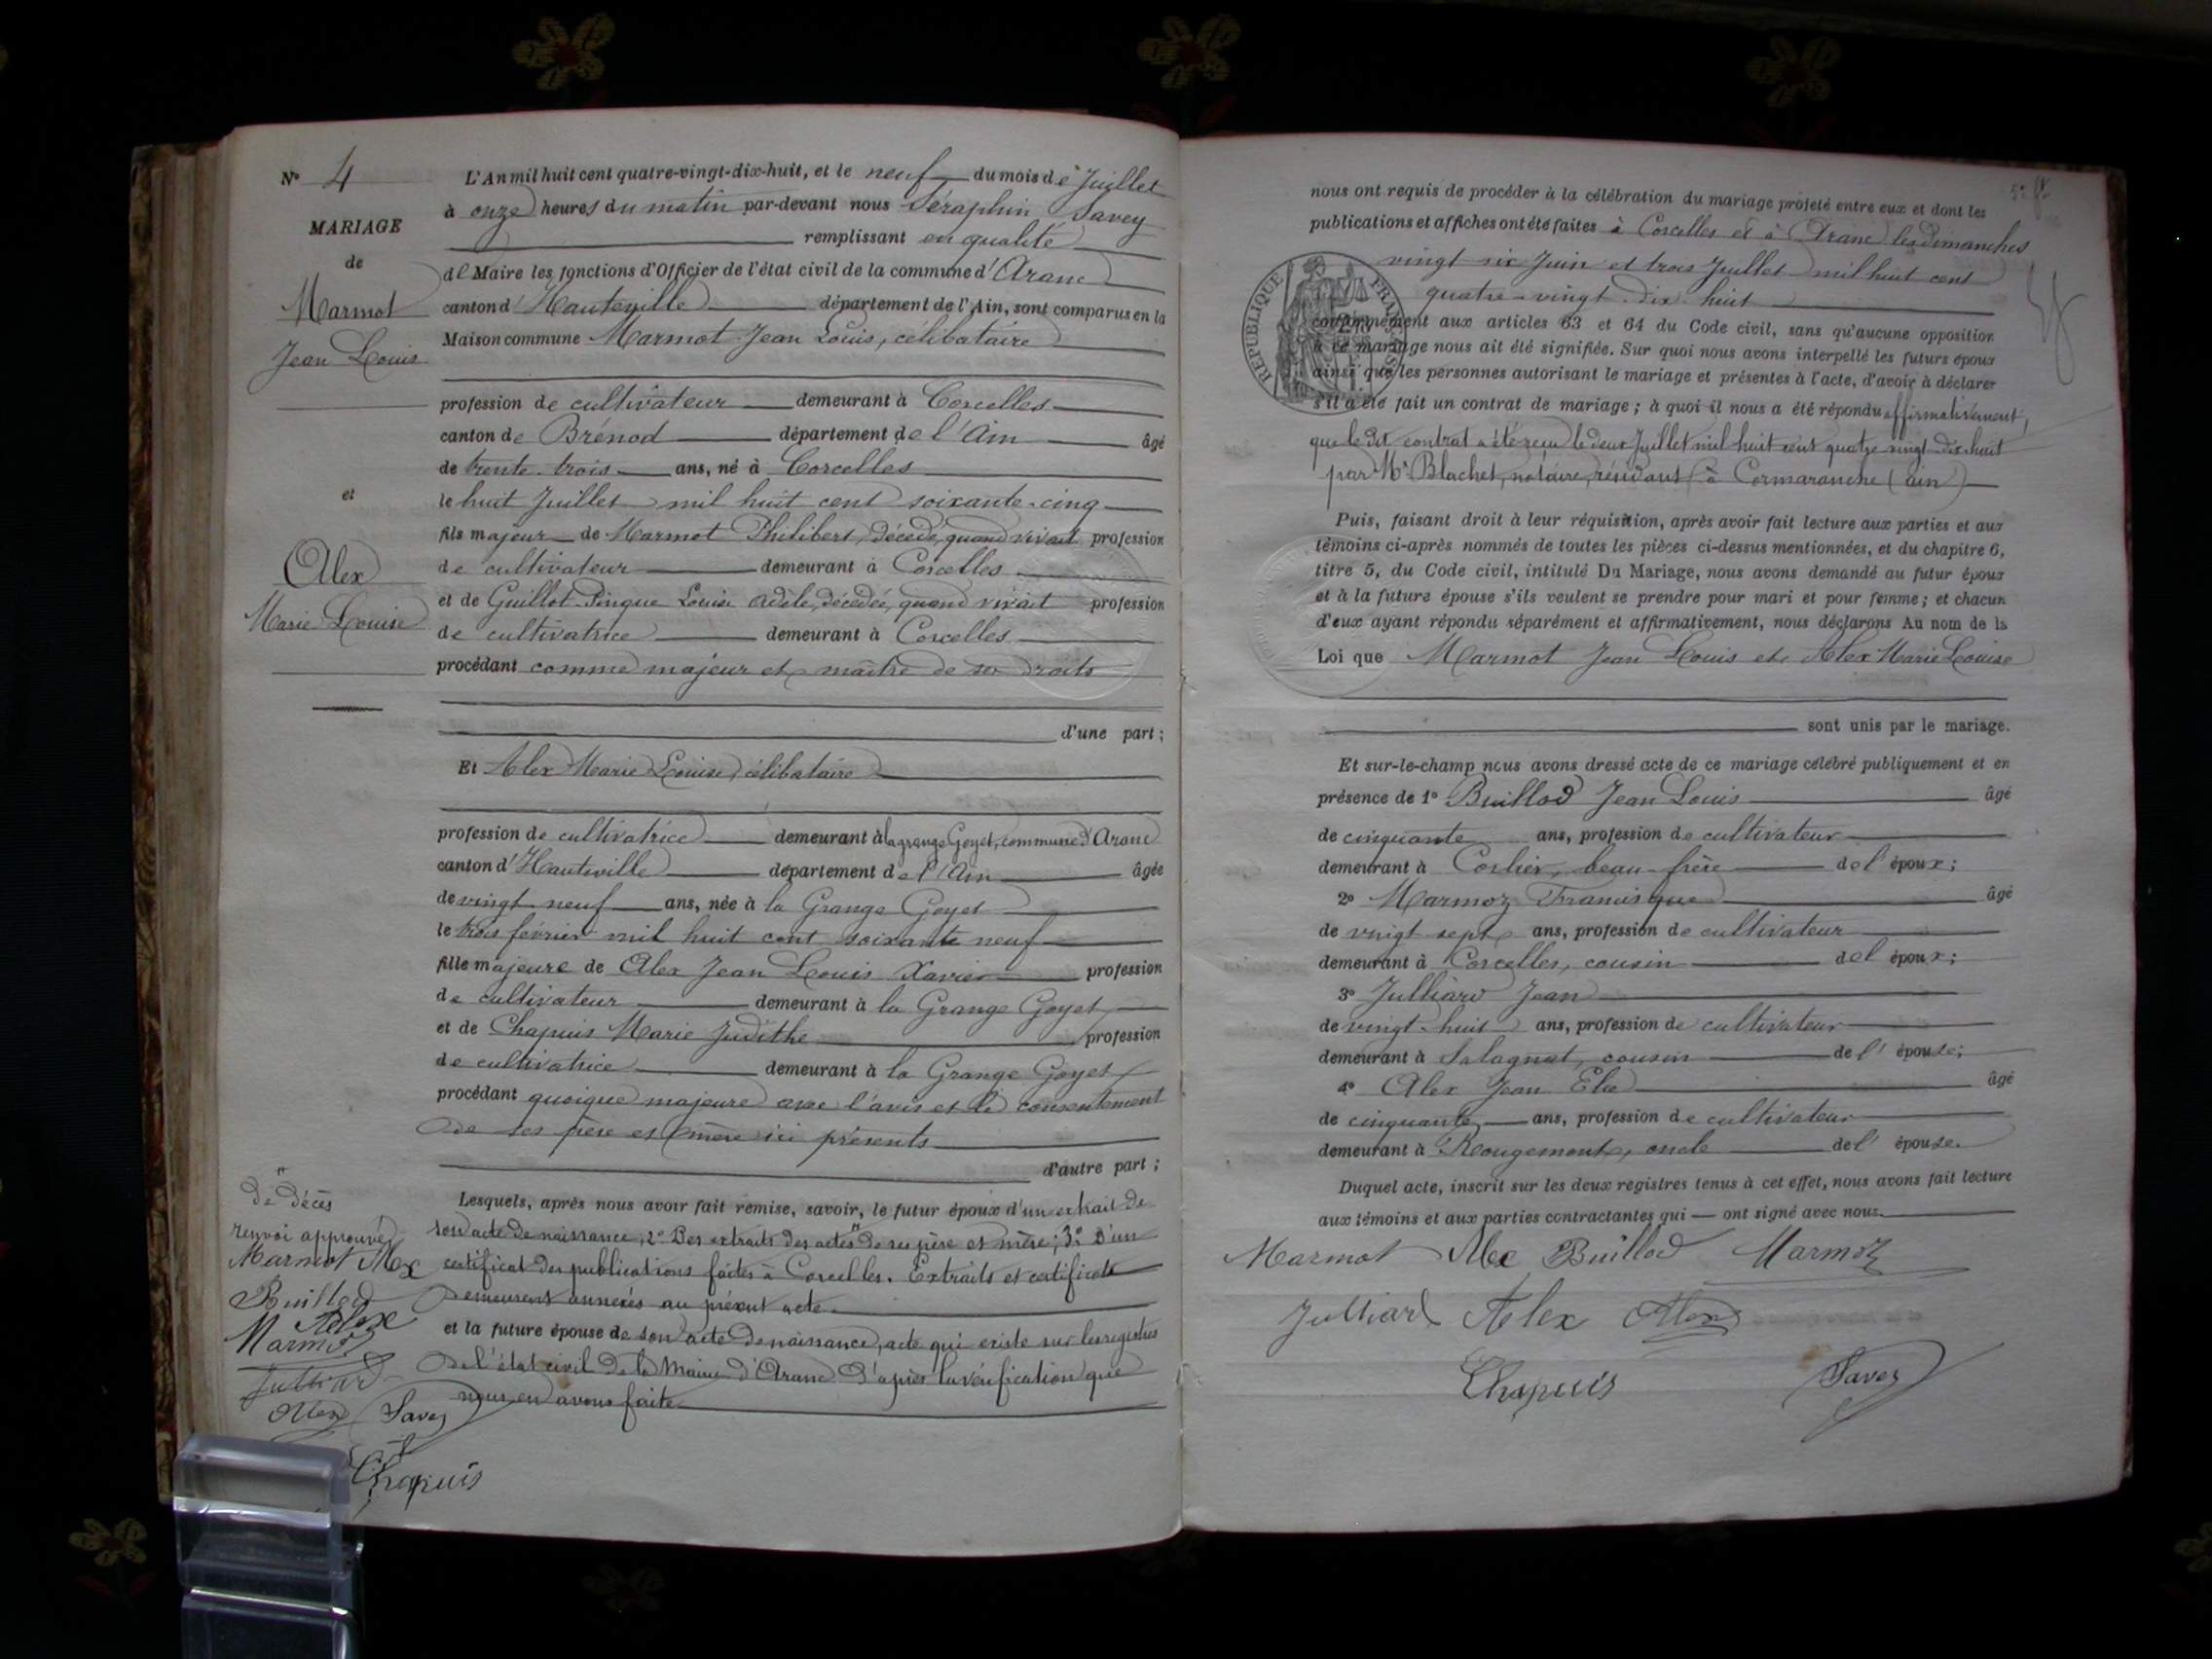 N° 4
MARIAGE
de
Marmot
Jean Louis
et
Alex
Marie Louise
L'An mil huit cent quatre-vingt-dix-huit, et le neuf du mois de Juillet
à onze heures du matin par-devant nous Séraphin Savey
remplissant en qualité
de Maire les fonctions d'Officier de l'état civil de la commune d'Aranc
canton d'Hauteville département de l'Ain, sont comparus en la
Maison commune Marmot Jean Louis, célibataire
profession de cultivateur demeurant à Corcelles
canton de Brénod département de l'Ain âgé
de trente-trois ans, né à Corcelles
le huit Juillet mil huit cent soixante-cinq
fils majeur de Marmot Philibert, décédé, quand vivait profession
de cultivateur demeurant à Corcelles
et de Guillot Pingue Louise Adèle, décédée, quand vivait profession
de cultivatrice demeurant à Corcelles
procédant comme majeur et maître de ses droits
d'une part ;
Et Alex Marie Louise, célibataire
profession de cultivatrice demeurant à la grange Goyet, commune d'Aranc
canton d'Hauteville département de l'Ain âgée
de vingt neuf ans, née à la Grange Goyet
le trois février mil huit cent soixante neuf
fille majeure de Alex Jean Louis Xavier profession
de cultivateur demeurant à la Grange Goyet
et de Chapuis Marie Judithe profession
de cultivatrice demeurant à la Grange Goyet
procédant quoique majeure avec l'avis et le consentement
de ses père et mère ici présents
d'autre part ;
Lesquels, après nous avoir fait remise, savoir, le futur époux d'un extrait de
son acte de naissance, 2° Des extraits des actes " de ses père et mère ; 3° D'un
certificat des publications faites à Corcelles. Extraits et certificats
demeurent annexés au présent acte.
et la future épouse de son acte de naissance, acte qui existe sur les registres
de l'état civil de la Mairie d'Aranc d'après la vérification que
nous en avons faite
" de décès
renvoi approuvé
Marmot Alex
Buillod
Alex
Marmoz
Julliard
Alex Savey
Chapuis
nous ont requis de procéder à la célébration du mariage projeté entre eux et dont les
publications et affiches ont été faites à Corcelles et à Aranc les dimanches
vingt six Juin et trois Juillet mil huit cent
quatre-vingt-dix-huit
conformément aux articles 63 et 64 du Code civil, sans qu'aucune opposition
à ce mariage nous ait été signifiée. Sur quoi nous avons interpellé les futurs époux
ainsi que les personnes autorisant le mariage et présentes à l'acte, d'avoir à déclarer
s'il a été fait un contrat de mariage ; à quoi il nous a été répondu affirmativement,
que le dit contrat a été reçu le deux Juillet mil huit cent quatre vingt dix huit
par Mr Blachet, notaire, résidant à Cormaranche (ain)
RÉPUBLIQUE FRANÇAISE
Puis, faisant droit à leur réquisition, après avoir fait lecture aux parties et aux
témoins ci-après nommés de toutes les pièces ci-dessus mentionnées, et du chapitre 6,
titre 5, du Code civil, intitulé Du Mariage, nous avons demandé au futur époux
et à la future épouse s'ils veulent se prendre pour mari et pour femme ; et chacun
d'eux ayant répondu séparément et affirmativement, nous déclarons Au nom de la
Loi que Marmot Jean Louis et Alex Marie Louise
sont unis par le mariage.
Et sur-le-champ nous avons dressé acte de ce mariage célébré publiquement et en
présence de 1° Buillod Jean Louis âgé
de cinquante ans, profession de cultivateur
demeurant à Corlier, beau-frère de l'époux ;
2° Marmoz Francisque âgé
de vingt sept ans, profession de cultivateur
demeurant à Corcelles, cousin de l'époux ;
3° Julliard Jean
de vingt-huit ans, profession de cultivateur
demeurant à Salagnat, cousin de l'épouse ;
4° Alex Jean Elie âgé
de cinquante ans, profession de cultivateur
demeurant à Rougemont, oncle de l'épouse.
Duquel acte, inscrit sur les deux registres tenus à cet effet, nous avons fait lecture
aux témoins et aux parties contractantes qui ont signé avec nous.
Marmot Alex Buillod Marmoz
Julliard Alex Alex
Chapuis Savey